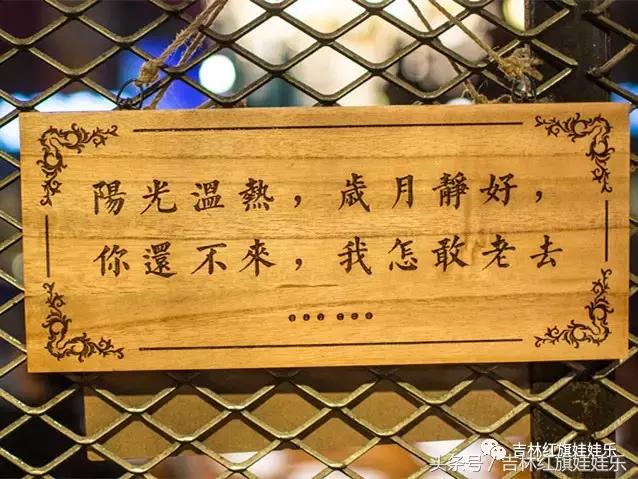 陽光溫熱，歲月靜好，
你還不來，我怎敢老去
吉林红旗娃娃乐
头条号/吉林红旗娃娃乐